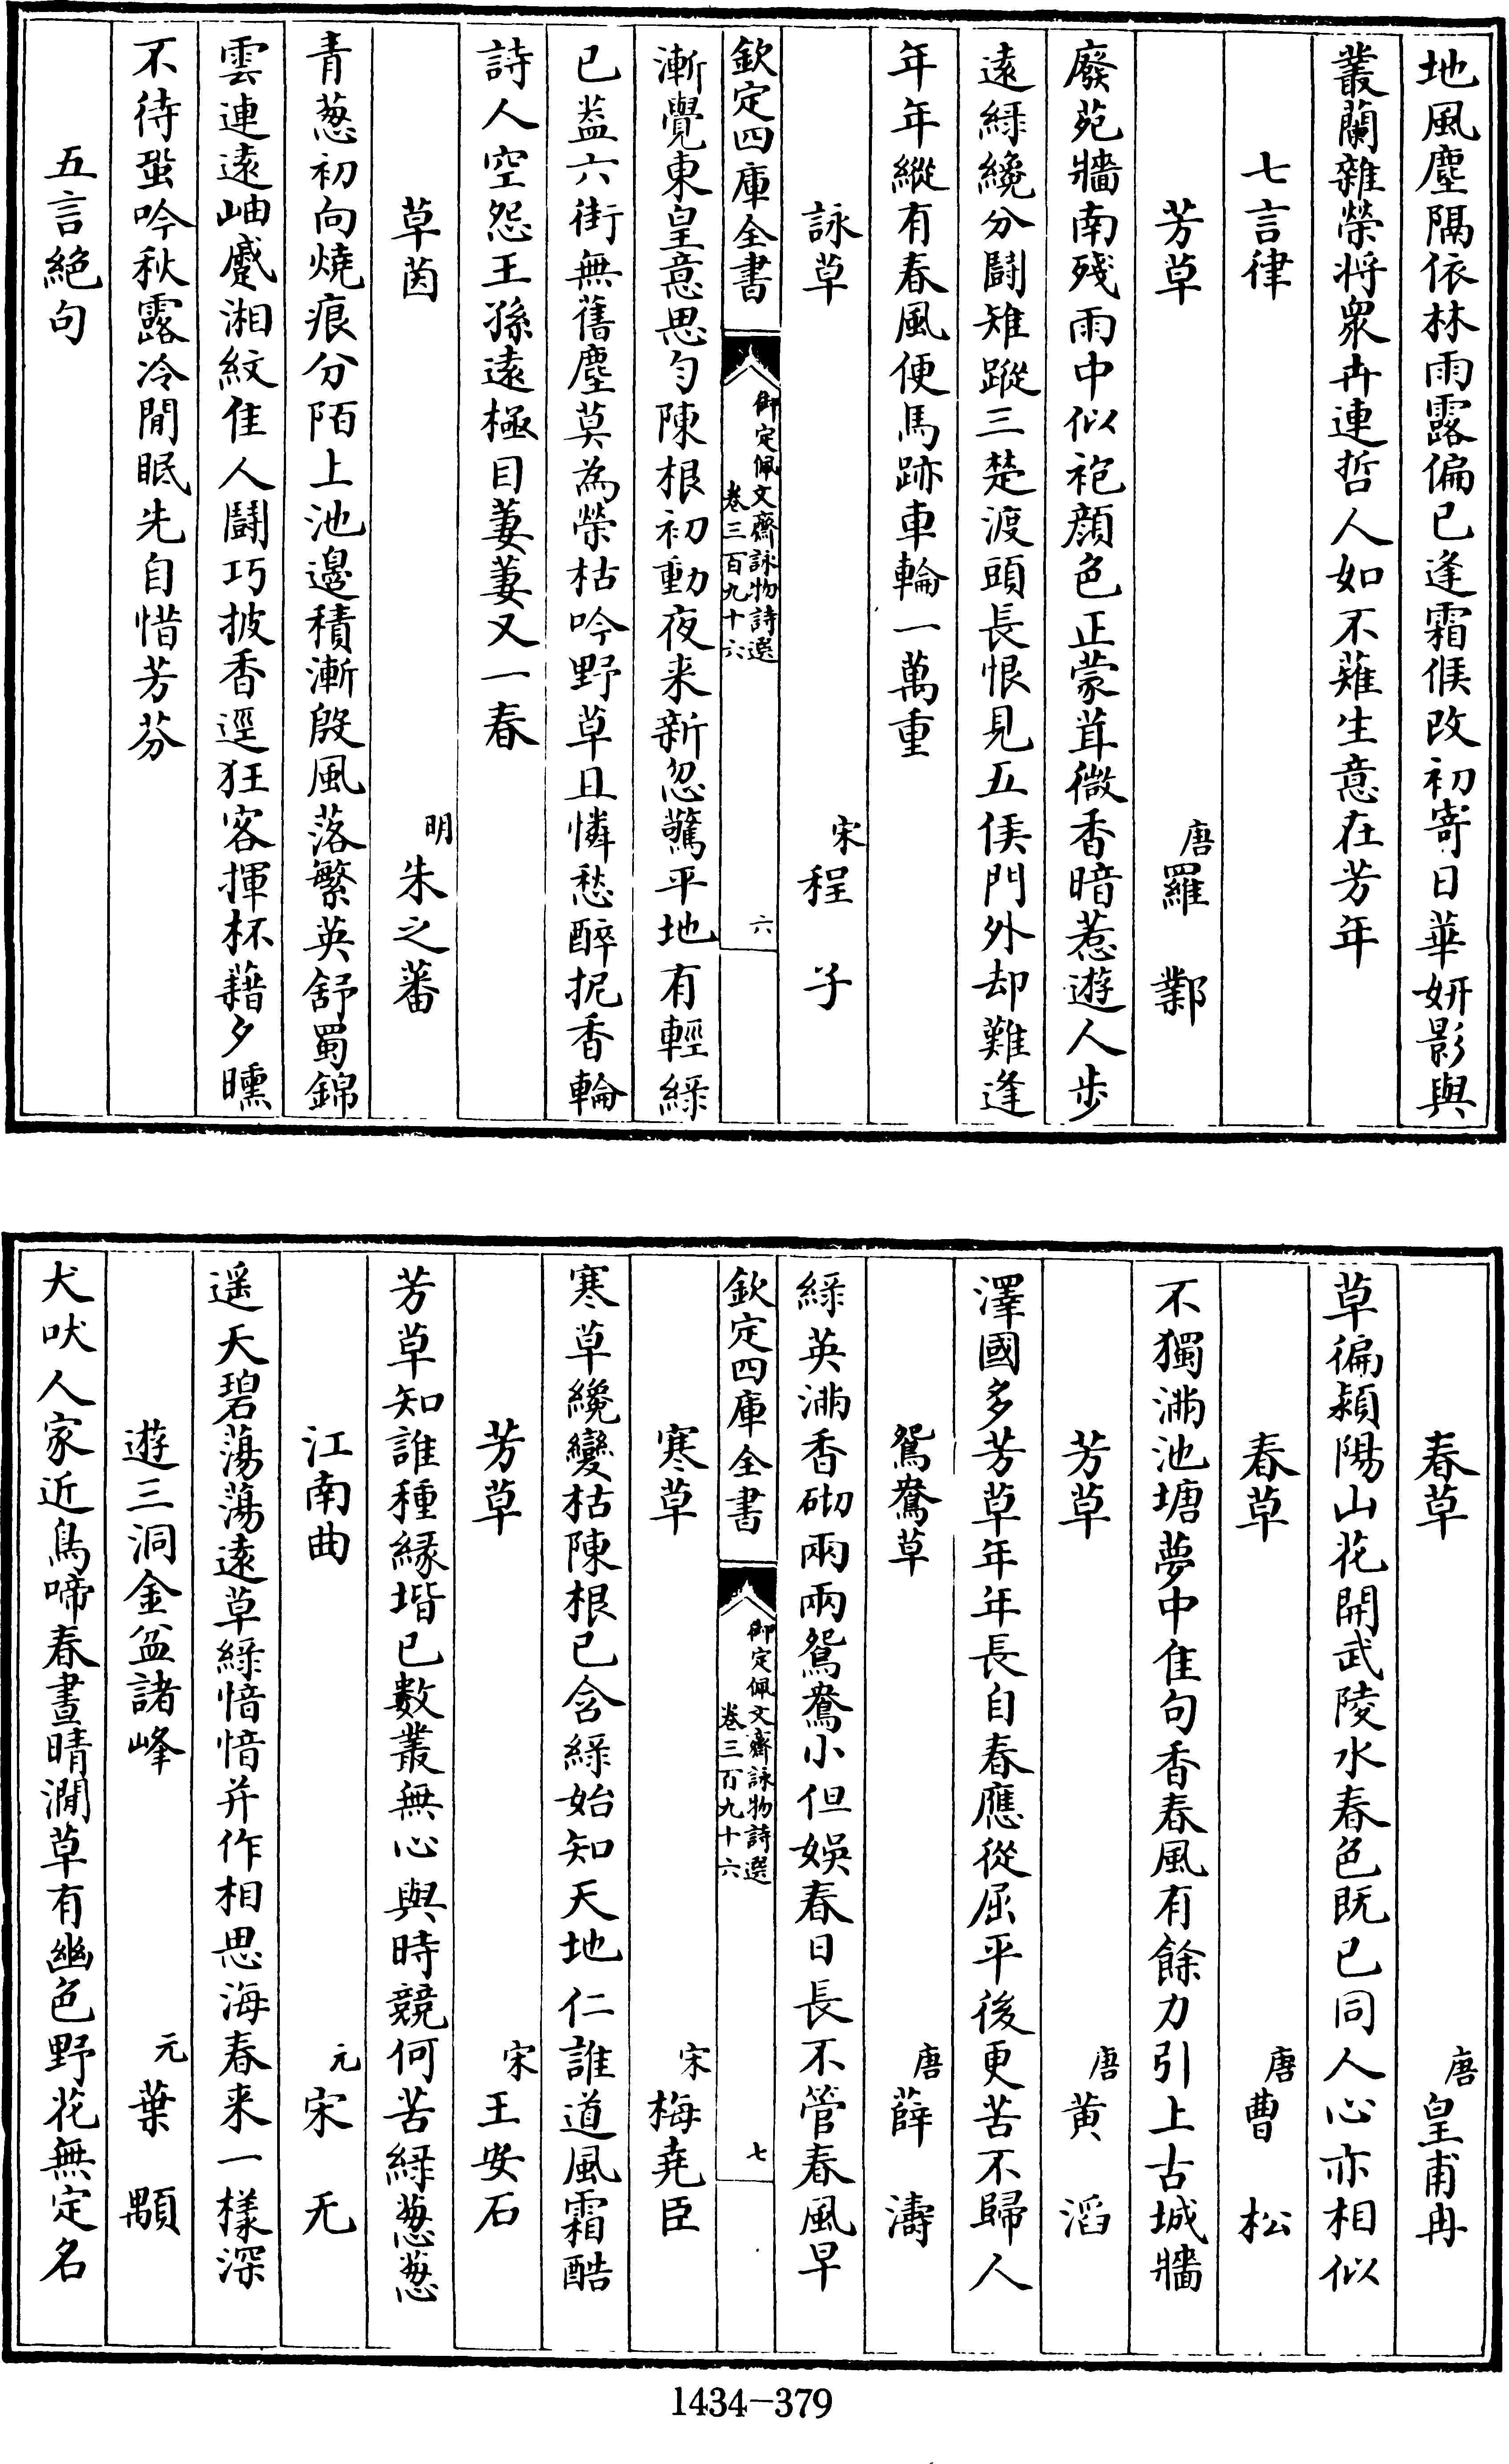 地風塵隔依林雨露偏已逢霜候改初寄日華妍影與
叢蘭雜榮將衆卉連哲人如不薙生意在芳年
七言律
芳草 唐羅鄴
廢苑牆南殘雨中似袍顔色正蒙茸微香暗惹遊人步
遠緑纔分鬪雉蹤三楚渡頭長恨見五侯門外却難逢
年年縱有春風便馬跡車輪一萬重
詠草 宋程子
欽定四庫全書 御定佩文齋詠物詩選 卷三百九十六 六
漸覺東皇意思勻陳根初動夜来新忽驚平地有輕緑
已葢六街無舊塵莫為榮枯吟野草且憐愁醉抳香輪
詩人空怨王孫遠極目萋萋又一春
草茵 明朱之蕃
青葱初向燒痕分陌上池邊積漸殷風落繁英舒蜀錦
雲連遠岫蹙湘紋佳人鬪巧披香逕狂客揮杯藉夕曛
不待蛩吟秋露冷閒眠先自惜芳芬
五言絶句
春草 唐皇甫冉
草徧潁陽山花開武陵水春色既已同人心亦相似
春草 唐曹松
不獨滿池塘夢中佳句香春風有餘力引上古城牆
芳草 唐黄滔
澤國多芳草年年長自春應從屈平後更苦不歸人
鴛鴦草 唐薛濤
緑英滿香砌兩兩鴛鴦小但娛春日長不管春風早
欽定四庫全書 御定佩文齋詠物詩選 卷三百九十六 七
寒草 宋梅堯臣
寒草纔變枯陳根已含緑始知天地仁誰道風霜酷
芳草 宋王安石
芳草知誰種緣堦已數叢無心與時競何苦緑葱葱
江南曲 元宋无
遥天碧蕩蕩遠草緑愔愔并作相思海春来一樣深
遊三洞金盆諸峰 元葉顒
犬吠人家近鳥啼春晝晴澗草有幽色野花無定名
1434-379